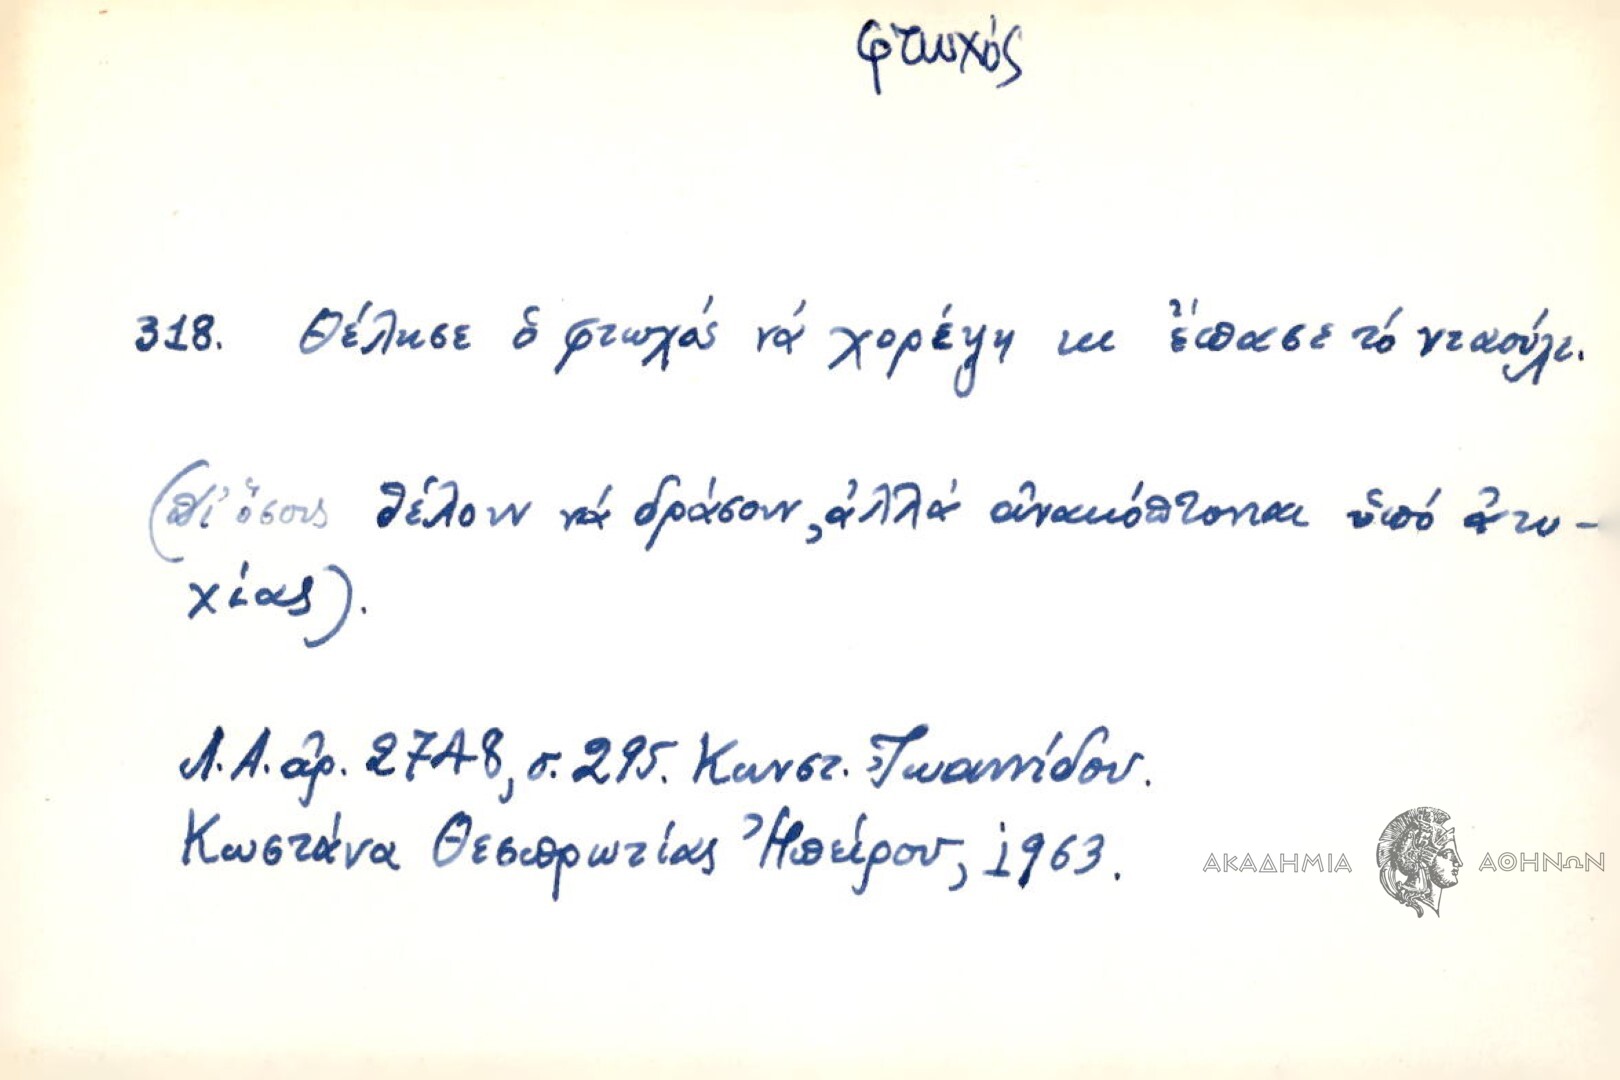 φτωχός
318. Θέλησε ὁ φτωχός νά χορέψη κι ἔσπασε τό νταούλι.
(Ἐπί ὅσους θέλουν νά δράσουν, ἀλλά ἀνακόπτονται ὑπό ἀτυ-
χίας).
Λ.Α. ἀρ. 2748, σ. 295. Κωνστ. Ἰωαννίδου.
Κωστάνα Θεσπρωτίας Ἠπείρου, 1963.
ΑΚΑΔΗΜΙΑ ΑΘΗΝΩΝ